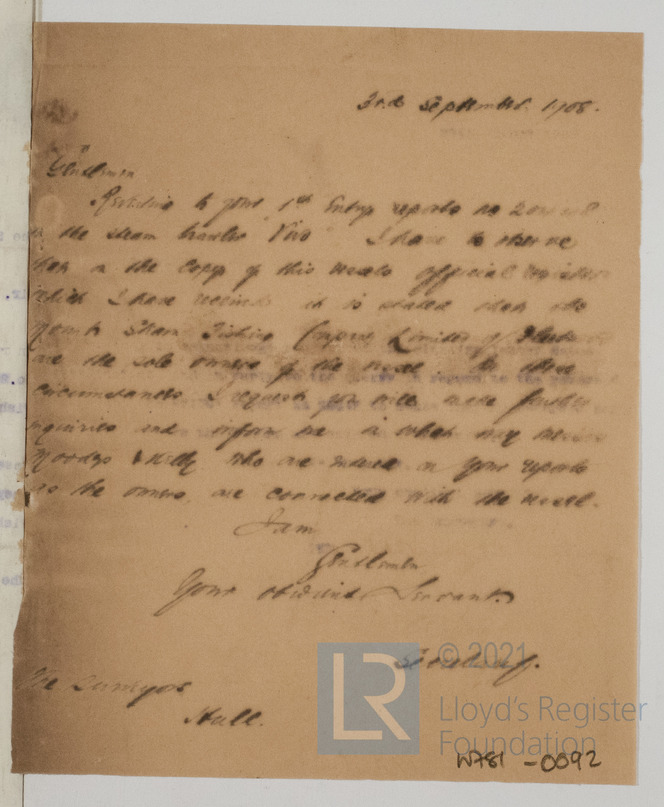 3rd September 1908.
Gentlemen
Referring to your 1st Entry reports no
on the steam trawler "Viva" I have to observe
that in the copy of this vessels official register
which I have received it is stated that the
Steam Fishing Company Limited of
are the sole owners of the vessel. In these
circumstances I request you will make further
inquiries and inform me in what way Messrs
Moodys & Kelly who are entered in your reports
as the owners, are connected with the vessel.
I am
Gentlemen
Your obedient Servant
Secretary.
The Surveyors
Hull.
© 2021
LR
Lloyd's Register
Foundation
W781 - 0092